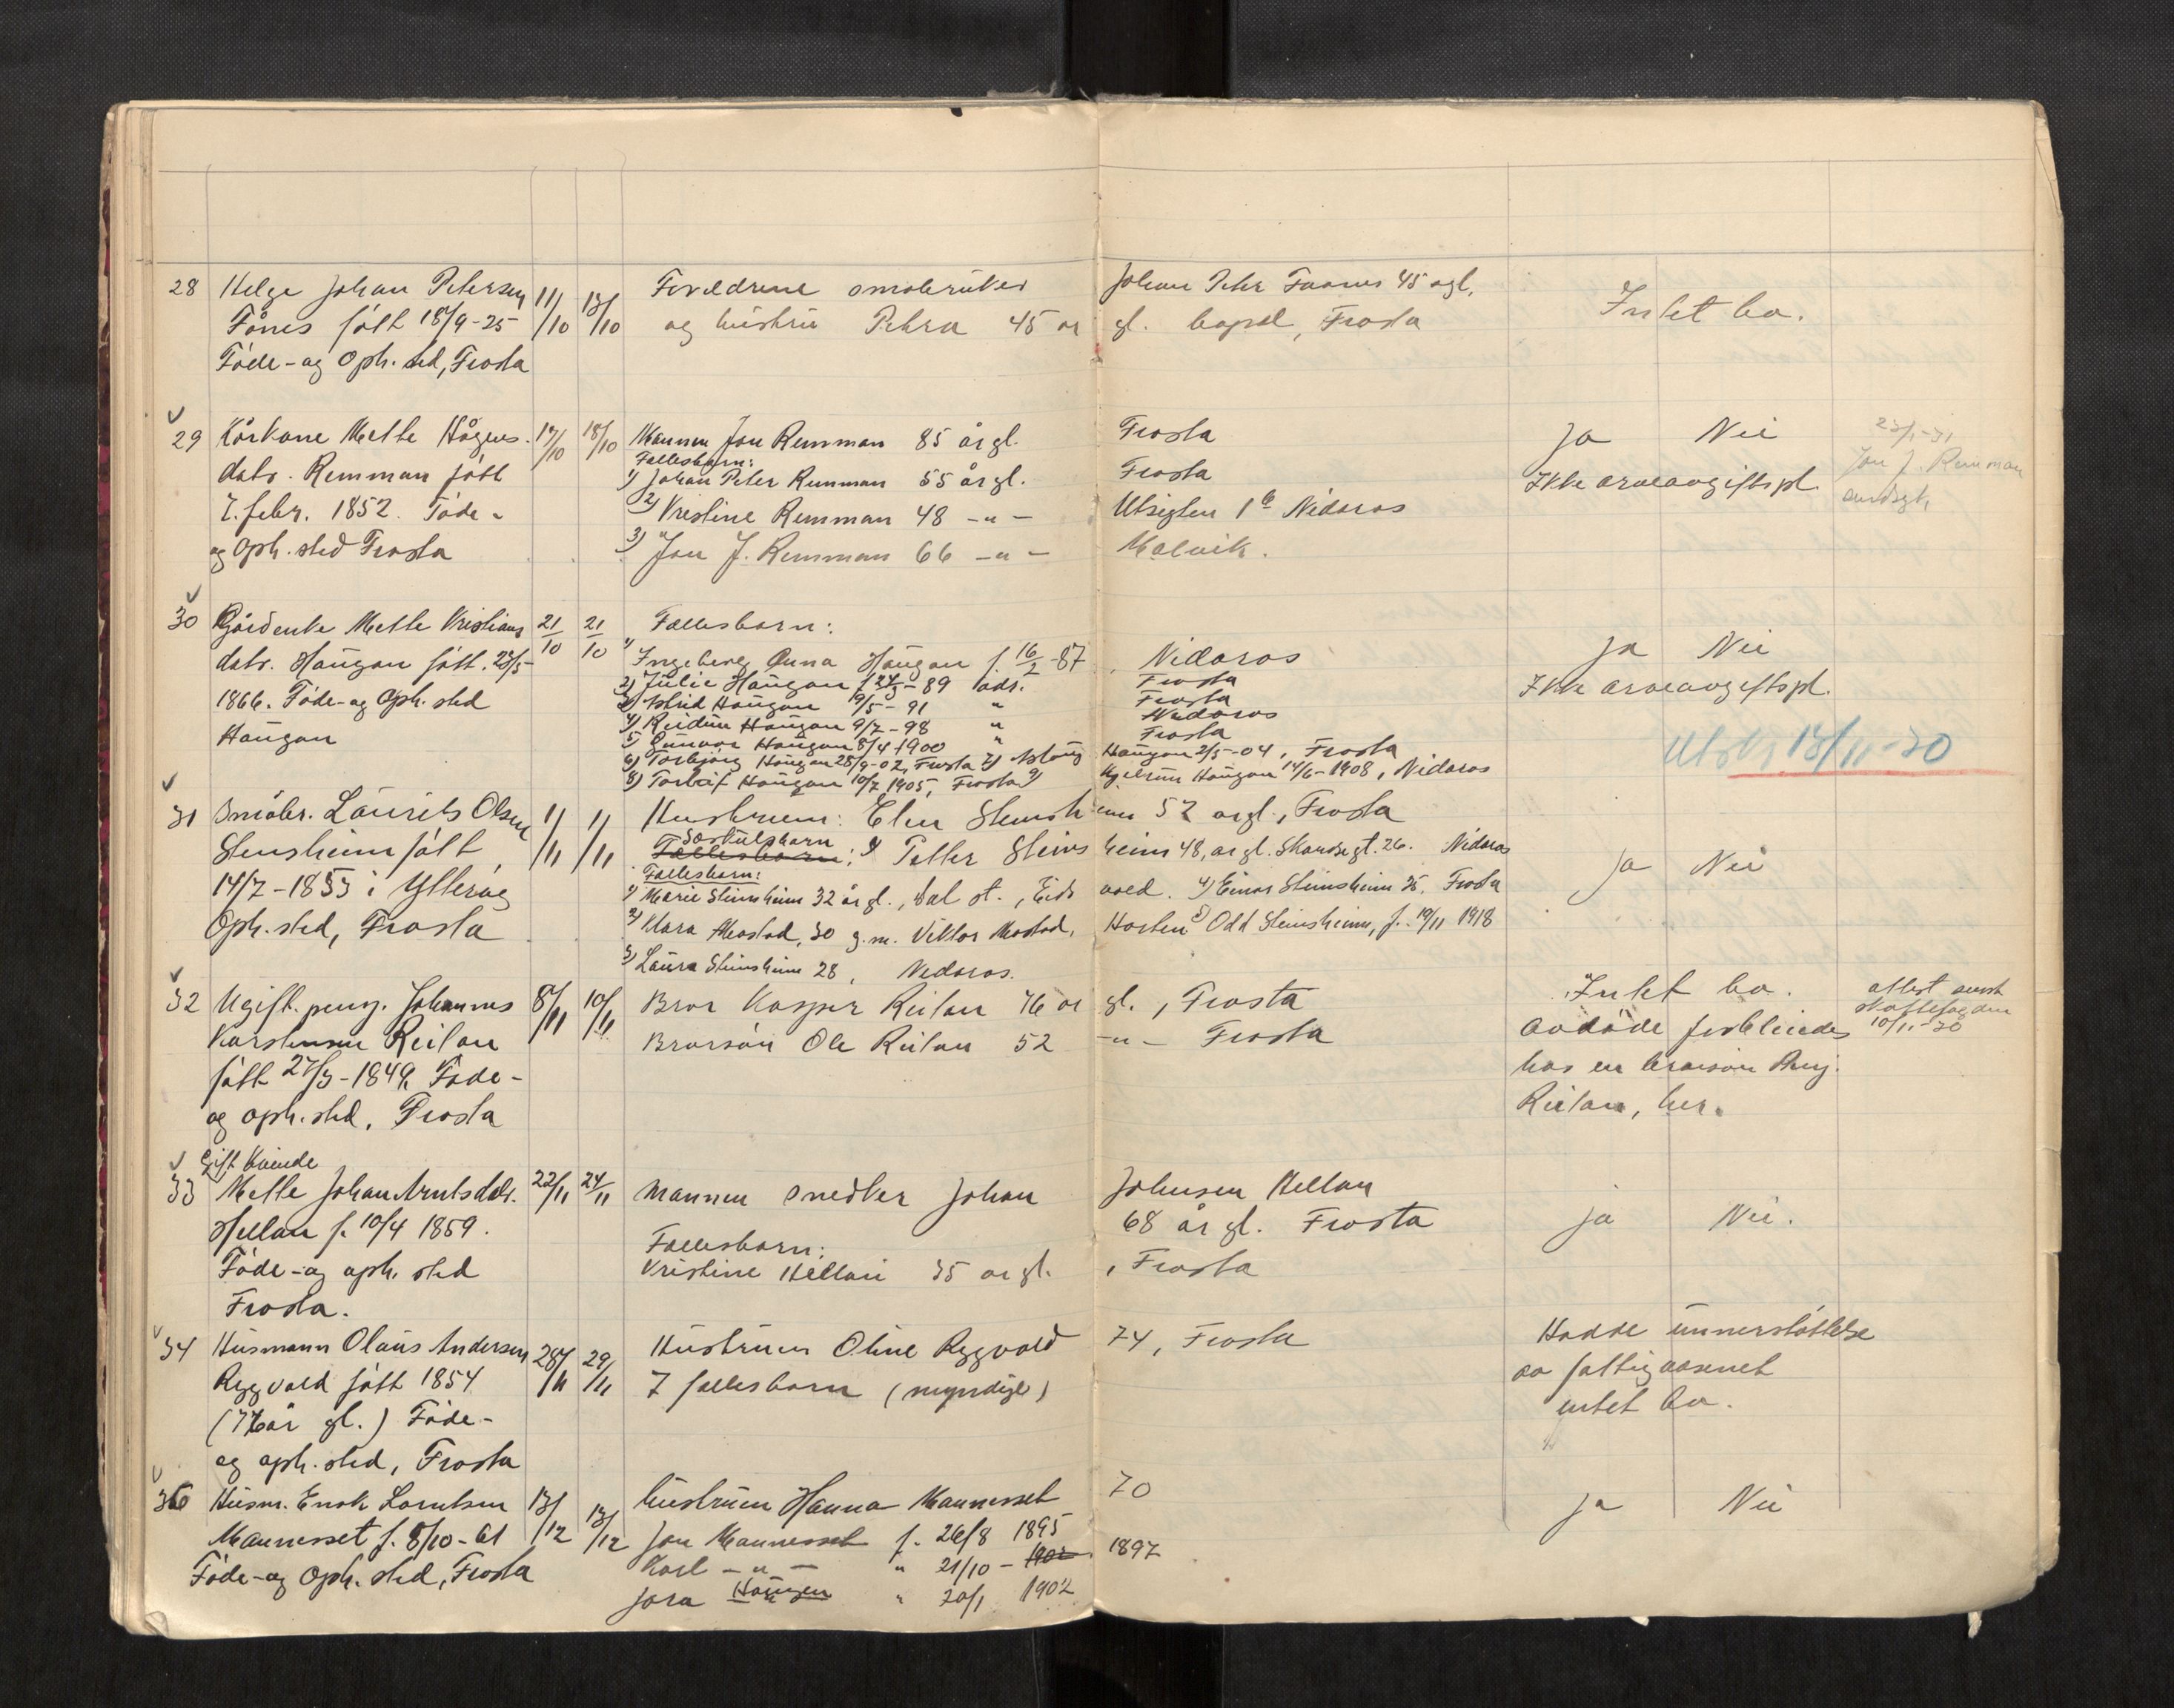 28 Helge Johan Petersen 11/10 13/10 Foreldrene småbruker Johan Peter Faanes 45 agl,
Fånes født 18/9-25 og hustru Petra 45 år gl. Frosta Intet bo.
Føde- og Oph. sted, Frosta
29 Kårkone Mette Hågens- 17/10 18/10 Mannen Jon Remman 85 år gl. Frosta Ja Nei 23/1-31
datr. Remman født Fællesbarn: Jon J. Remman
1) Johan Peter Remman 55 år gl. Frosta Ikke arveavgiftspl.
7. febr. 1852. Føde- 2) Kristine Remman 48 -"- Utsigten 16 Nidaros
og Oph. sted Frosta 3) Jon J. Remman 66 -"- Malvik.
30 Gårdenke Mette Kristians 21/10 21/10 Fællesbarn:
datr. Haugan født. 23/5- 1) Ingeborg Anna Haugan f. 16/2-87, Nidaros Ja Nei
2) Julie Haugan f. - 89 adr. Frosta Ikke arveavgiftspl.
1866. Føde- og Oph. sted 3) Astrid Haugan 19/5-91 " Frosta
Haugan 4) Reidun Haugan 9/7-98 " Nidaros
5) Gunvor Haugan 8/4 1900 " Frosta
6) Torbjørg Haugan 25/9-02, Frosta 7) Aslaug Haugan 2/5-04, Frosta 13/11-30
8) Torleif Haugan 10/7 1905, Frosta 9) Haugan 14/6-1908, Nidaros
31 Småbr. Laurits Olsen 1/11 1/11 Hustruen: Elen Stensheim 52 årgl., Frosta
Stensheim født Særkulsbarn
Fællesbarn: 1) Petter Steinsheim 48, årgl. Skansegt. 26. Nidaros Ja Nei
Fællesbarn:
14/7-1853 i Ytterøy 1) Marie Steinsheim 32 år gl., Dal st., Eidsvold. 4) Einar Steinsheim 35. Frosta
Oph. sted, Frosta 2) Klara Mostad, 30 g.m. Viktor Mostad, Horten 5) Odd Steinsheim, f. 19/11 1918
3) Laura Steinsheim 28, Nidaros.
32 Ugift. pens. Johannes 8/11 10/11 Bror Kasper Reitan 76 år gl., Frosta Intet bo. attest sendt
Karstensen Reitan Brorsøn Ole Reitan 52 -"- Frosta Avdøde forblindes skattefogden
10/11-30
født 27/3-1849, Føde- hos en brorsøn
og oph. sted, Frosta Reitan, her.
Gift kvinde
33 Mette Johan Arntsdatr. 22/11 24/11 Mannen snedker Johan Johnsen Hellan
Hellan f. 10/4 1859. 68 år gl. Frosta ja Nei.
Fællesbarn:
Føde- og oph. sted Kristine Hellan 35 år gl., Frosta
Frosta.
34 Husmann Olaus Andersen 28/11 29/11 Hustruen Oline Ryggvold 74, Frosta Hadde understøttelse
Ryggvold født 1854 7 fællesbarn (myndige) av fattigvæsenet
(76 år gl.) Føde- intet bo.
og oph. sted, Frosta
36 Husm. Enok Lorntsen 13/12 13/12 hustruen Hanna Mannesset 70 ja Nei
Mannesset f. 8/10-61 Jon Mannesset f. 26/8 1895
Føde- og Oph. sted, Frosta Karl -"- " 21/10- 1902 1897
Jora Haugen " 20/1 1902